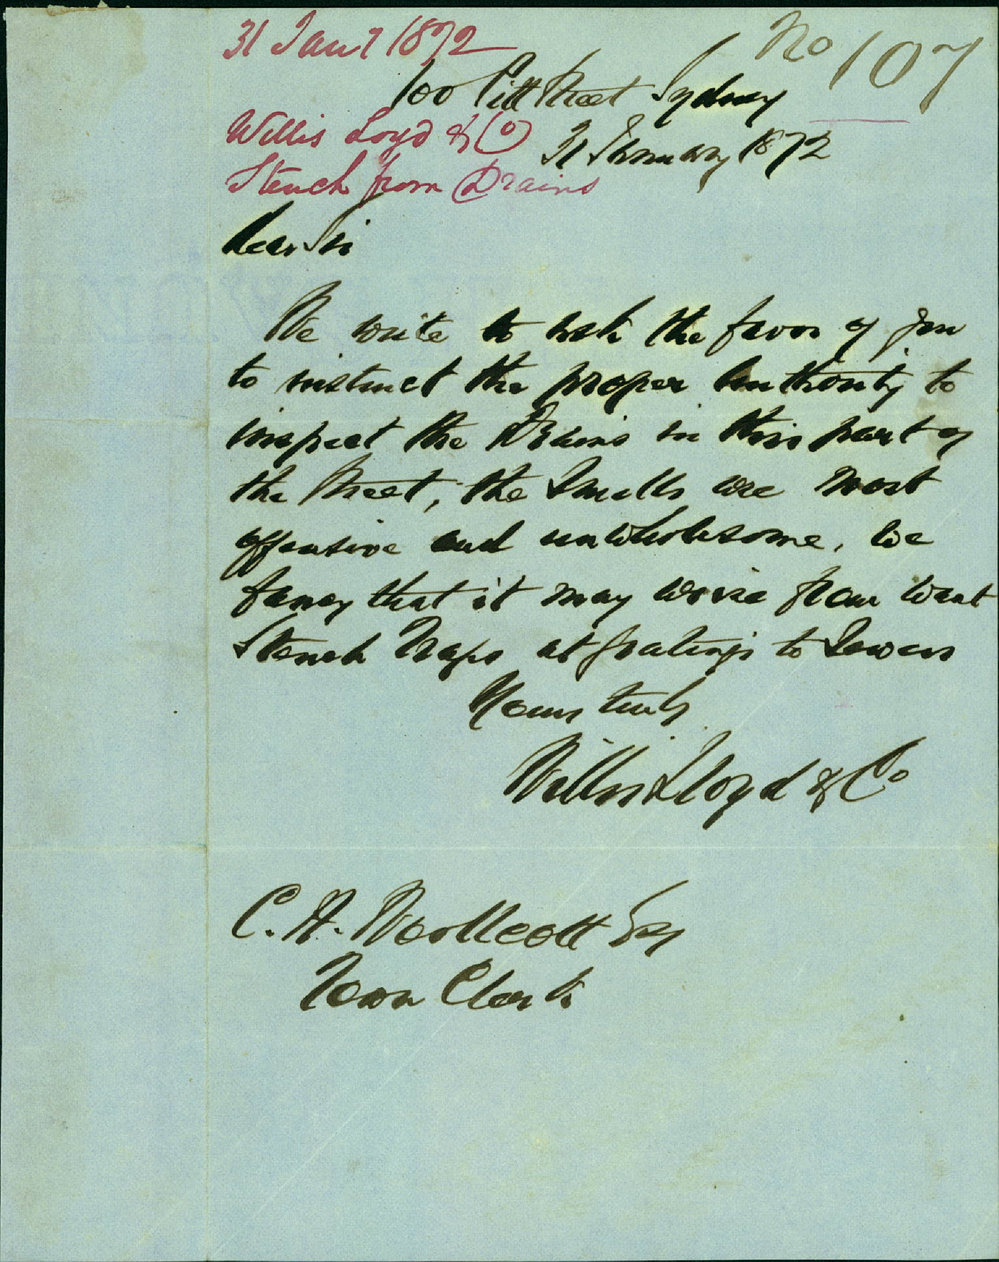 31 Jany 1872
No 107
100 Pitt Street Sydney
Willis Loyd & Co
31 January 1872
Stench from Drains
Dear Sir
We write to ask the favor of you
to instruct the proper Authority to
inspect the Drains in this part of
the Street, the Smells are most
offensive and unwholesome, we
fancy that it may arise from want
Stench Traps at gratings to Sewers
Yours truly
Willis Lloyd & Co
C. H. Woollcott Esq
Town Clerk